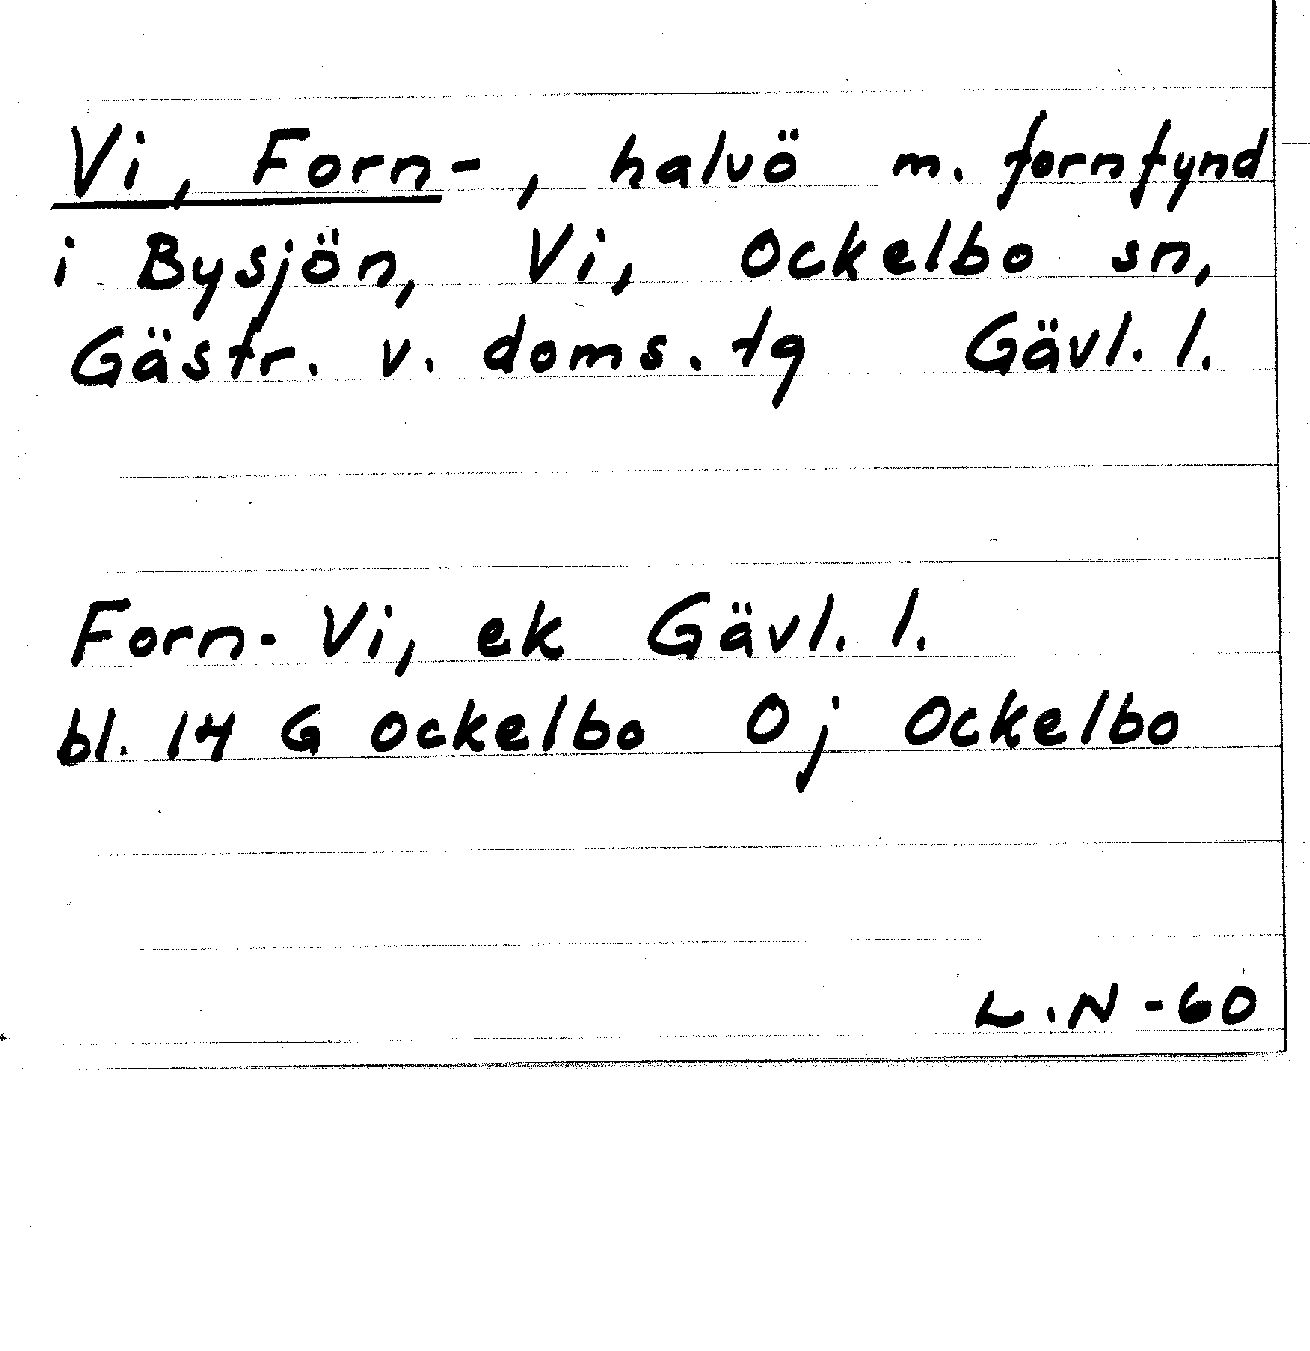 Vi, Forn-, halvö m. fornfynd
i Bysjön, Vi, Ockelbo sn,
Gästr. v. doms. tg Gävl. l.
Forn-Vi, ek Gävl. l.
bl. 14 G Ockelbo Oj Ockelbo
L.N -60